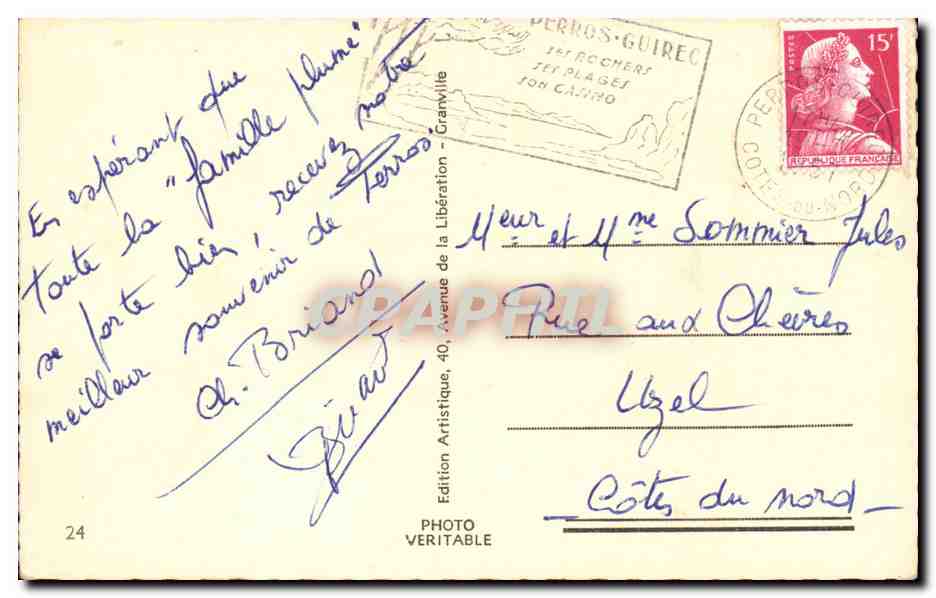 En espérant que
toute la "famille plumé"
se porte bien, recevez notre
meilleur souvenir de Perros.
Ch. Briand
24
PHOTO
VERITABLE
Edition Artistique, 40, Avenue de la Libération - Granville
PERROS-GUIREC
SES ROCHERS
SES PLAGES
SON CASINO
COTES-DU-NORD
POSTES
15F
REPUBLIQUE FRANCAISE
Meur et Mme Sommier Jules
Rue aux Chèvres
Uzel
Côtes du Nord
CPAPHIL